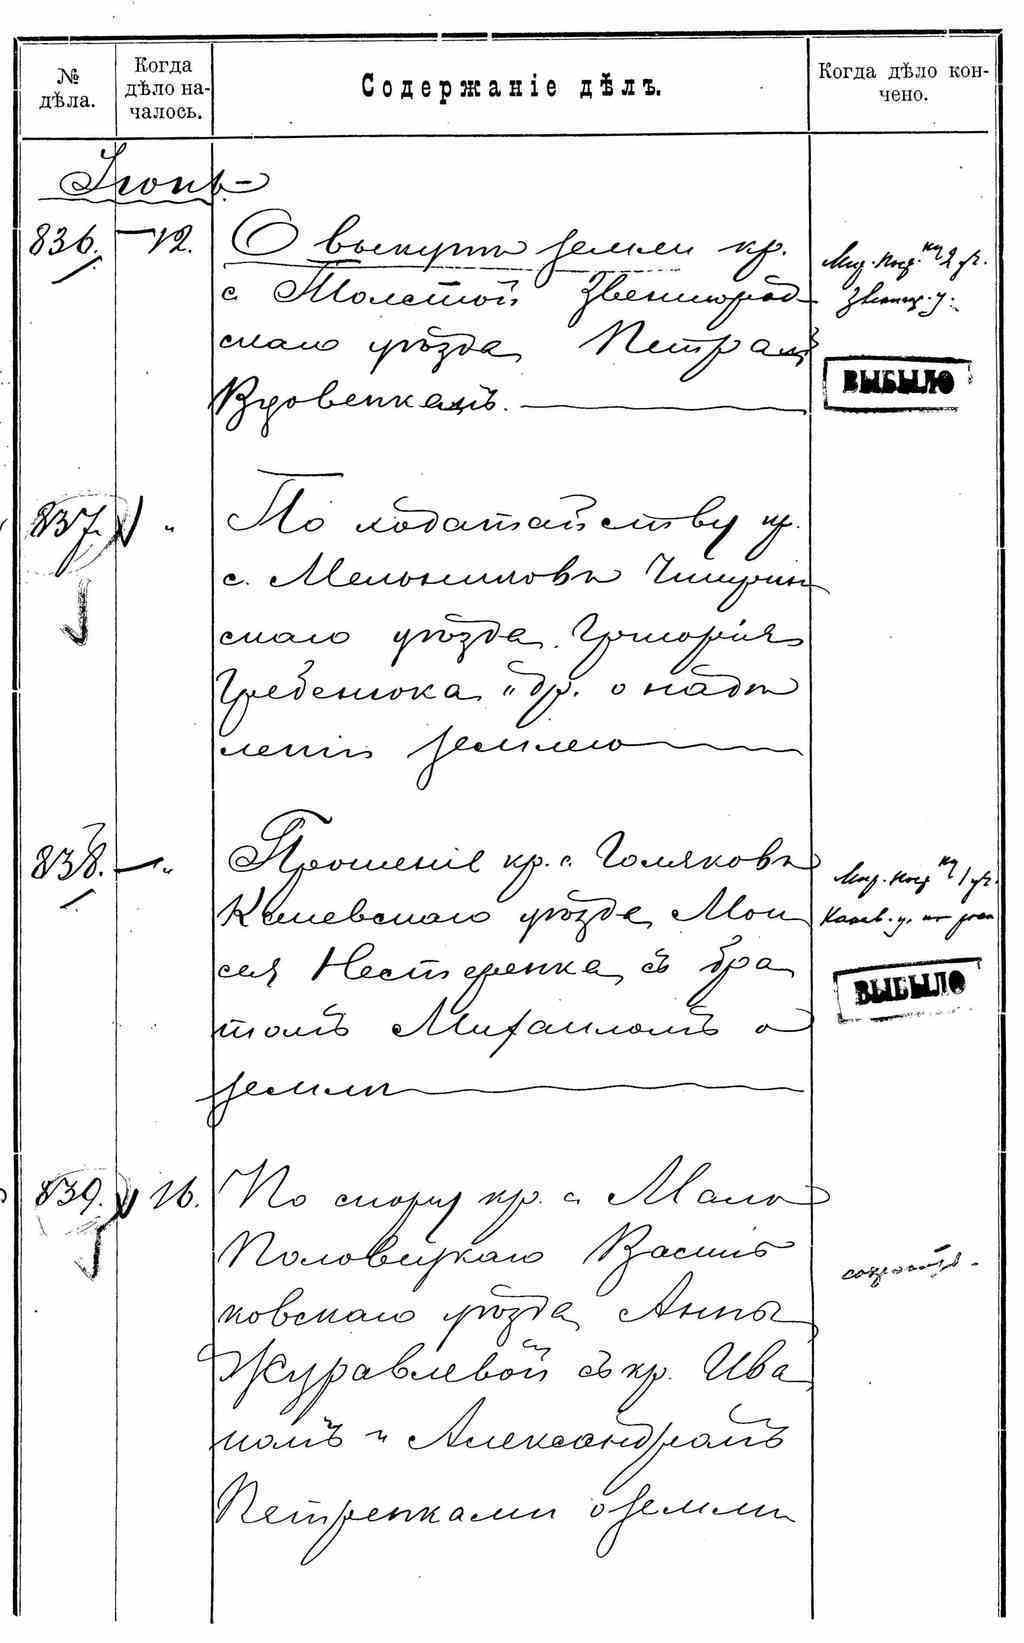 № дѣла.
Когда дѣло началось.
Содержаніе дѣлъ.
Когда дѣло кончено.
Іюнь
836. — 12. О выкупѣ земли кр.
с. Толстой Звенигород
скаго уѣзда Петромъ
Вдовенкомъ.
Мир. поср. 2 уч.
Звениг. у.
ВЫБЫЛО
837. " По ходатайству кр.
с. Мельниковъ Чигирин
скаго уѣзда Григорія
Гребенюка и др. о надѣ
леніи землею
838. — " Прошеніе кр. с. Голяковъ
Каневскаго уѣзда Мои
сея Нестеренка съ бра
томъ Михаиломъ о
землѣ
Мир. поср. 1 уч.
Канев. у.
ВЫБЫЛО
839. 16. По спору кр. с. Мало
Половецкаго Василь
ковскаго уѣзда Анны
Журавлевой съ кр. Ива
номъ и Александромъ
Петренками о землѣ